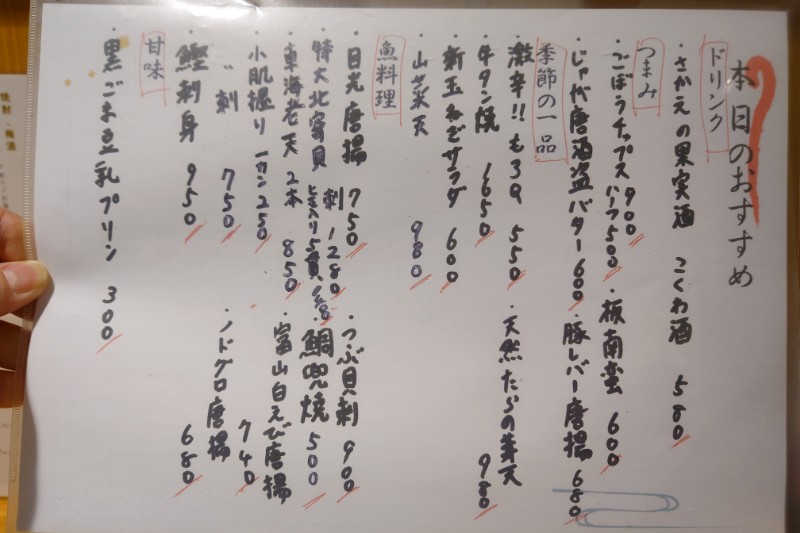 本日のおすすめ
ドリンク
・さかえの果実酒 こくわ酒 580
つまみ
・ごぼうチップス 900
ハーフ500
・板南蛮 600
・じゃが唐酒盗バター 600
・豚レバー唐揚 680
季節の一品
・激辛!!もろQ 550
・天然たらの芽天 980
・牛タン焼 1650
・新玉ねぎサラダ 600
・山菜天 980
魚料理
・目光唐揚 750
・つぶ貝刺 900
・特大北寄貝 刺1280
・鯛兜焼 500
・東海老天 2本 850
・富山白えび唐揚 740
・小肌握り 一カン250
〃刺 750
・ノドグロ唐揚 680
・鰹刺身 950
甘味
・黒ごま豆乳プリン 300